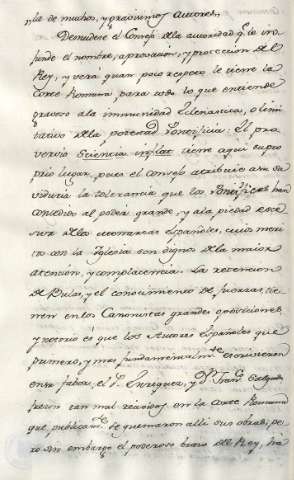 y la de muchos, y gravisimos Autores.
Desnudese el Consejo de la autoridad q.e le in-
funde el nombre, aprovacion, y proteccion del
Rey, y verá quan poco respeto le tiene la
Corte Romana para todo lo que entiende
gravoso a la immunidad Eclesiastica, o limi-
tativo de la potestad Pontificia. El pro-
verbio Sciencia inflat tiene aqui su pro-
prio lugar, pues el consejo atribuie a su sa-
viduria la tolerancia que los Pontifices han
concedido al poder grande, y a la piedad exce
siva de los Monarcas Españoles, cuios meri-
tos con la Iglesia son dignos de la maior
atencion, y complacencia. La retencion
de Bulas, y el conocimiento de fuerzas, tie-
nen en los Canonistas grandes oposiciones,
y notorio es que los Autores Españoles que
primero, y mas fundamentalm.te escrivieron
en su fabor, el P. Enrriquez, y D.n Fran.co Salgado
fueron tan mal recividos en la Corte Romana
que publicam.te se quemaron alli sus obras; pe-
ro sin embargo el poderoso brazo del Rey, ha